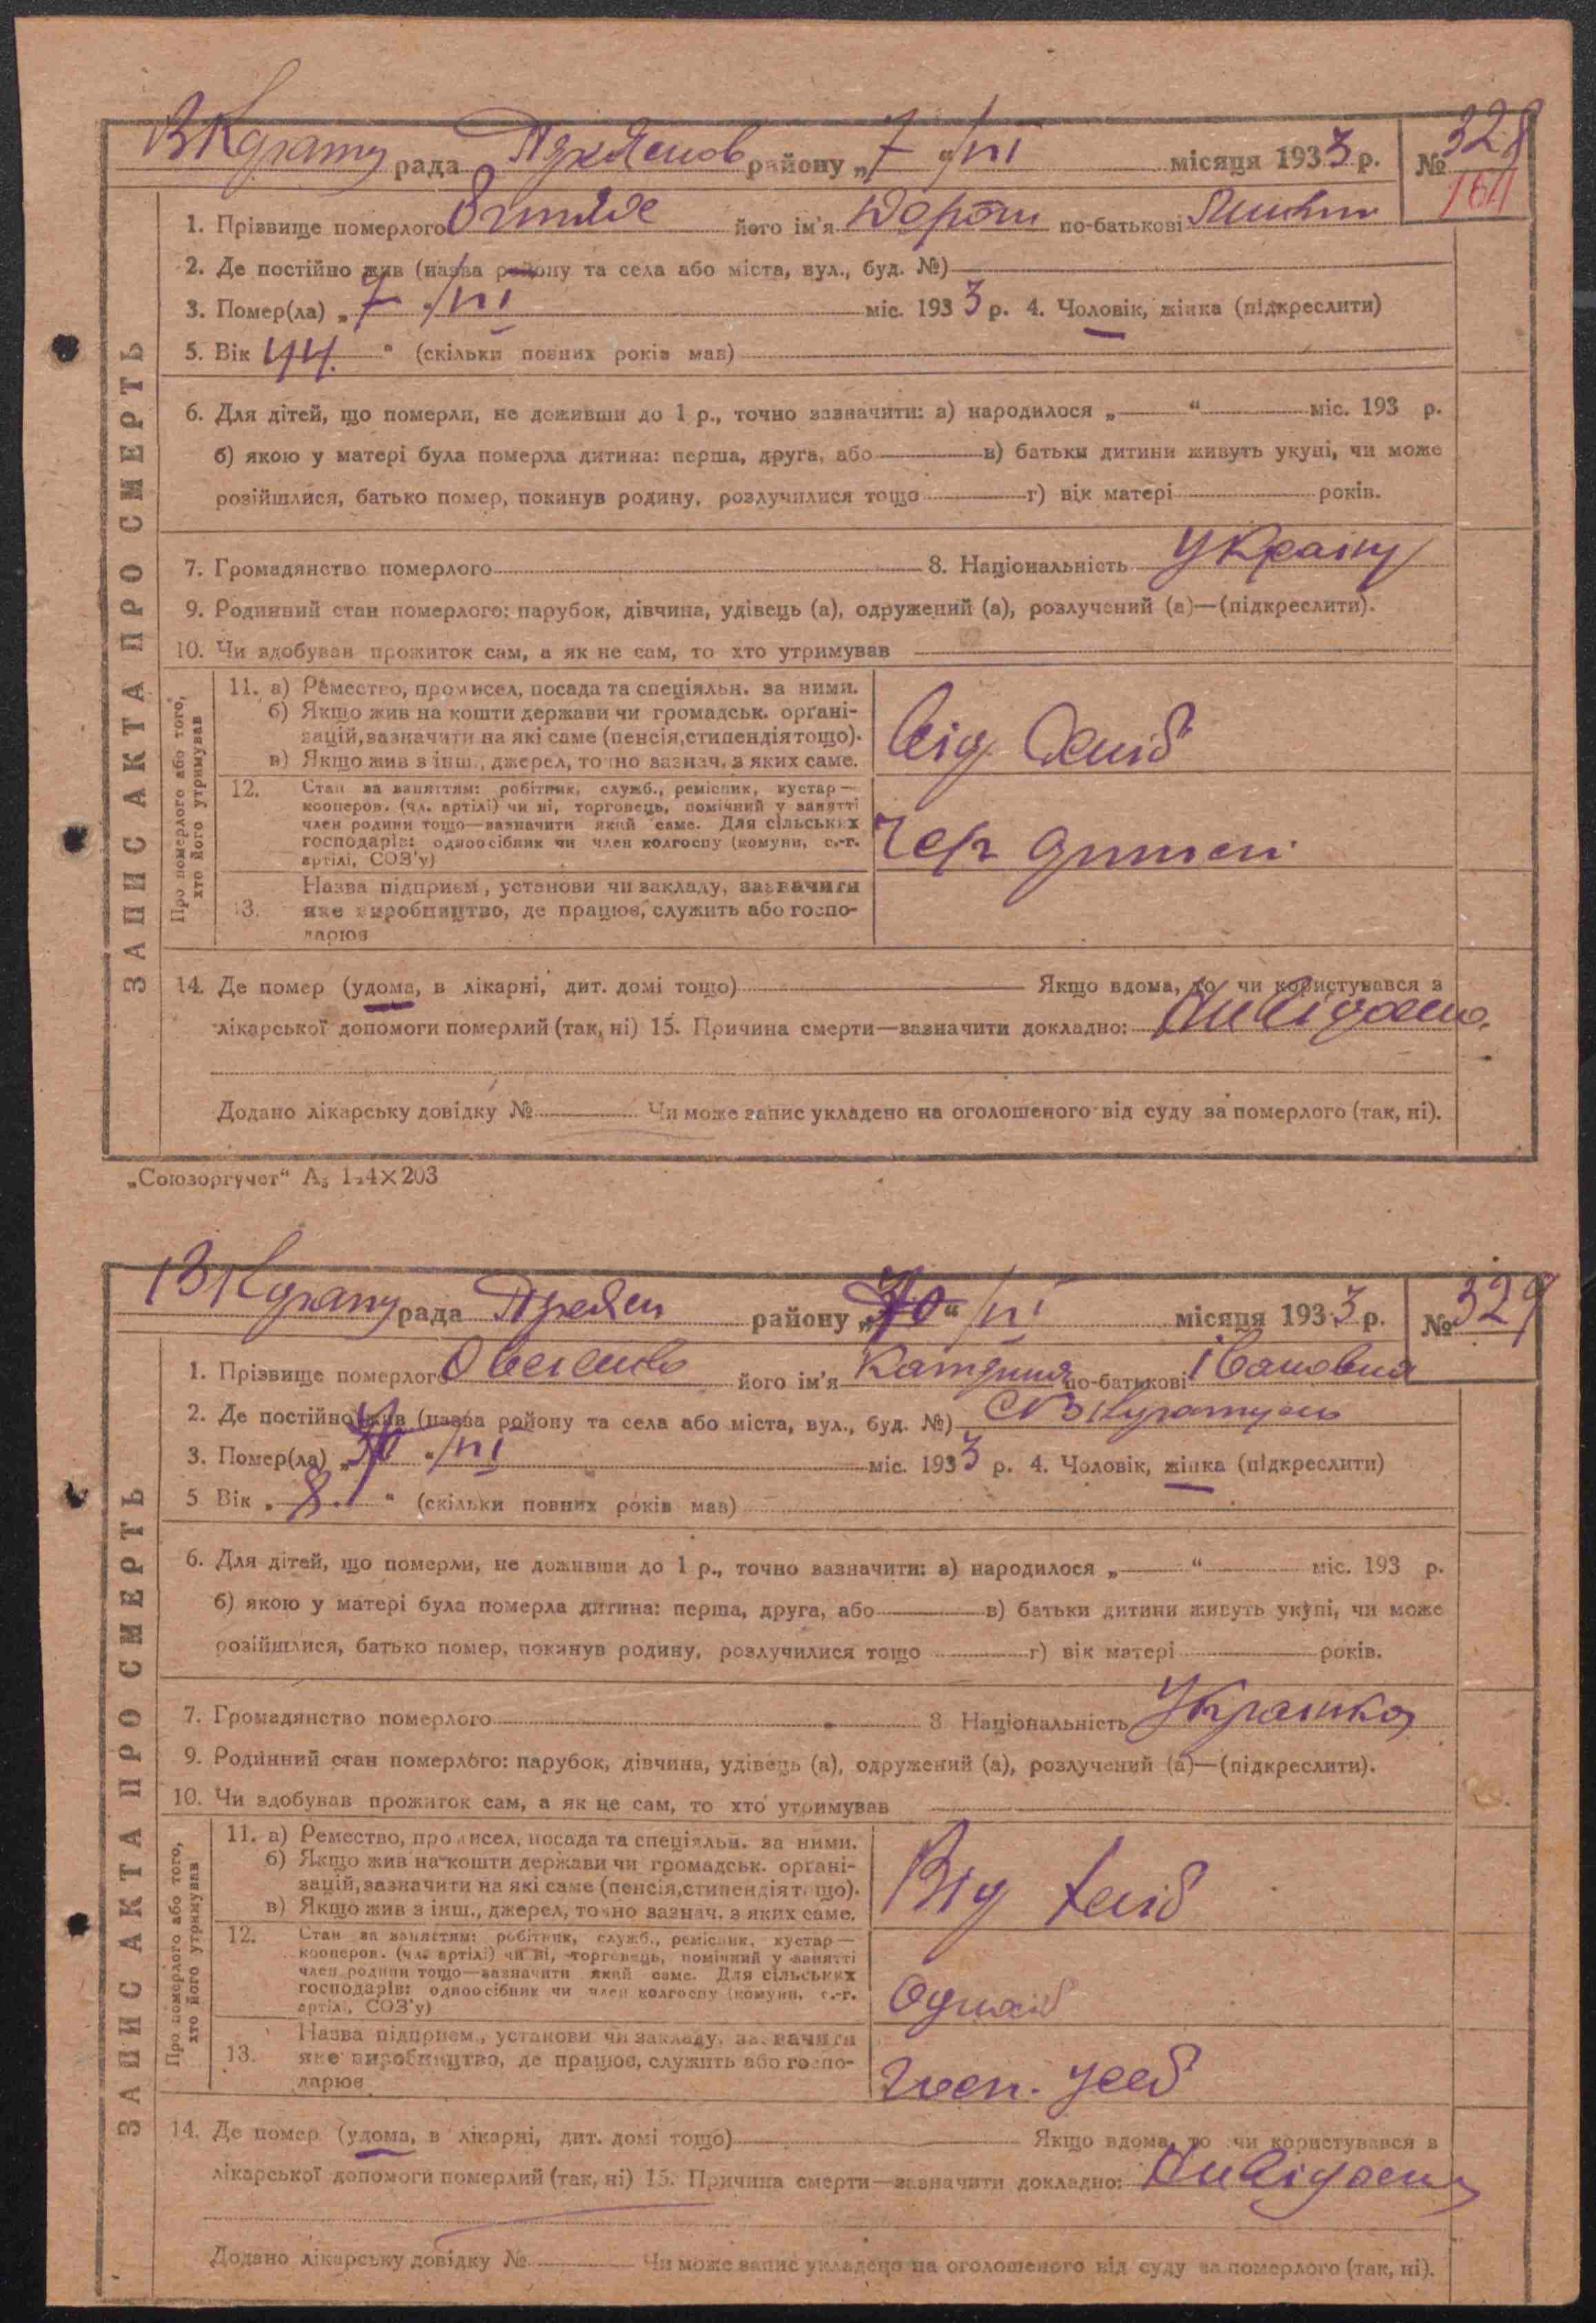 рада району „7 “/VI місяця 1933 р. № 328
164
1. Прізвище померлого його ім'я по-батькові
2. Де постійно жив (назва району та села або міста, вул., буд. №)
3. Помер(ла) „7 “/VI міс. 1933 р. 4. Чоловік, жінка (підкреслити)
5. Вік 44. “ (скільки повних років мав)
6. Для дітей, що померли, не доживши до 1 р., точно зазначити: а) народилося „ “ міс. 193 р.
б) якою у матері була померла дитина: перша, друга, або в) батьки дитини живуть укупі, чи може
розійшлися, батько помер, покинув родину, розлучилися тощо г) вік матері років.
7. Громадянство померлого 8. Національність Україну
9. Родинний стан померлого: парубок, дівчина, удівець (а), одружений (а), розлучений (а)—(підкреслити).
10. Чи здобував прожиток сам, а як не сам, то хто утримував
ЗАПИС АКТА ПРО СМЕРТЬ
Про померлого або того, хто його утримував
11. а) Ремество, промисел, посада та спеціяльн. за ними.
б) Якщо жив на кошти держави чи громадськ. органі-
зацій, зазначити на які саме (пенсія, стипендія тощо).
в) Якщо жив з інш., джерел, точно зазнач. з яких саме.
Від
12. Стан за заняттям: робітник, служб., ремісник, кустар—
кооперов. (чл. артілі) чи ні, торговець, помічний у занятті
член родини тощо—зазначити який саме. Для сільських
господарів: одноосібник чи член колгоспу (комуни, с.-г.
артілі, СОЗ'у)
13. Назва підприєм., установи чи закладу, зазначити
яке виробництво, де працює, служить або госпо-
дарює
14. Де помер (удома, в лікарні, дит. домі тощо) Якщо вдома, то чи користувався з
лікарської допомоги померлий (так, ні) 15. Причина смерти—зазначити докладно: Невідомо.
Додано лікарську довідку № Чи може запис укладено на оголошеного від суду за померлого (так, ні).
„Союзоргучет“ А₅ 144×203
рада району „ “/VI місяця 1933 р. № 329
1. Прізвище померлого його ім'я Катерина по-батькові Івановна
2. Де постійно жив (назва району та села або міста, вул., буд. №)
3. Помер(ла) „ “/VI міс. 1933 р. 4. Чоловік, жінка (підкреслити)
5 Вік „ 8. “ (скільки повних років мав)
6. Для дітей, що померли, не доживши до 1 р., точно зазначити: а) народилося „ “ міс. 193 р.
б) якою у матері була померла дитина: перша, друга, або в) батьки дитини живуть укупі, чи може
розійшлися, батько помер, покинув родину, розлучилися тощо г) вік матері років.
7. Громадянство померлого 8 Національність Українка
9. Родинний стан померлого: парубок, дівчина, удівець (а), одружений (а), розлучений (а)—(підкреслити).
10. Чи здобував прожиток сам, а як не сам, то хто утримував
ЗАПИС АКТА ПРО СМЕРТЬ
Про померлого або того, хто його утримував
11. а) Ремество, промисел, посада та спеціяльн. за ними.
б) Якщо жив на кошти держави чи громадськ. органі-
зацій, зазначити на які саме (пенсія, стипендія тощо).
в) Якщо жив з інш., джерел, точно зазнач. з яких саме.
Від
12. Стан за заняттям: робітник, служб., ремісник, кустар—
кооперов. (чл. артілі) чи ні, торговець, помічний у занятті
член родини тощо—зазначити який саме. Для сільських
господарів: одноосібник чи член колгоспу (комуни, с.-г.
артілі, СОЗ'у)
13. Назва підприєм., установи чи закладу, зазначити
яке виробництво, де працює, служить або госпо-
дарює
госп.
14. Де помер (удома, в лікарні, дит. домі тощо) Якщо вдома, то чи користувався з
лікарської допомоги померлий (так, ні) 15. Причина смерти—зазначити докладно: Невідомо
Додано лікарську довідку № Чи може запис укладено на оголошеного від суду за померлого (так, ні).